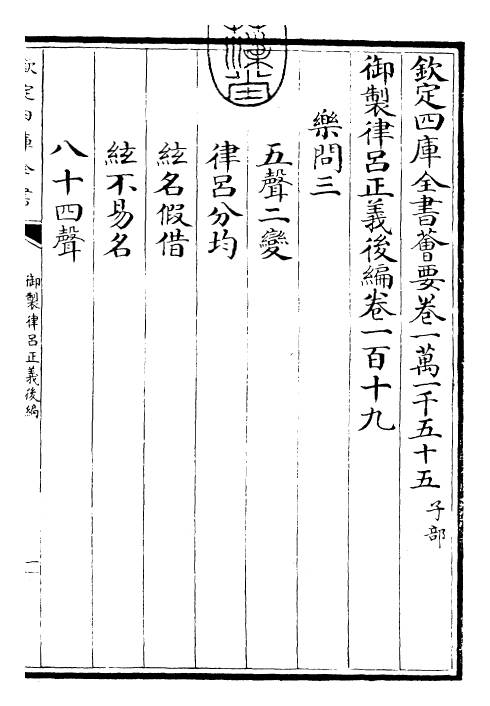 欽定四庫全書薈要卷一萬一千五十五 子部
御製律呂正義後編卷一百十九
樂問三
五聲二變
律呂分均
絃名假借
絃不易名
八十四聲
欽定四庫全書
御製律呂正義後編
一